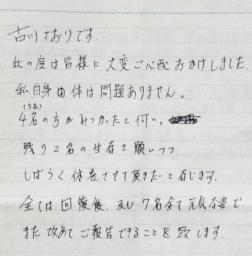 古川さおりです。
此の度は皆様に大変ご心配おかけしました。
私自身、体は問題ありません。
(うち)
4名の方がみつかったと伺い、
残り2名の生存を願いつつ
しばらく休養させて頂きたいと存じます。
全ては回復後、及び7名全て元気な姿で
また改めてご報告できることを致します。